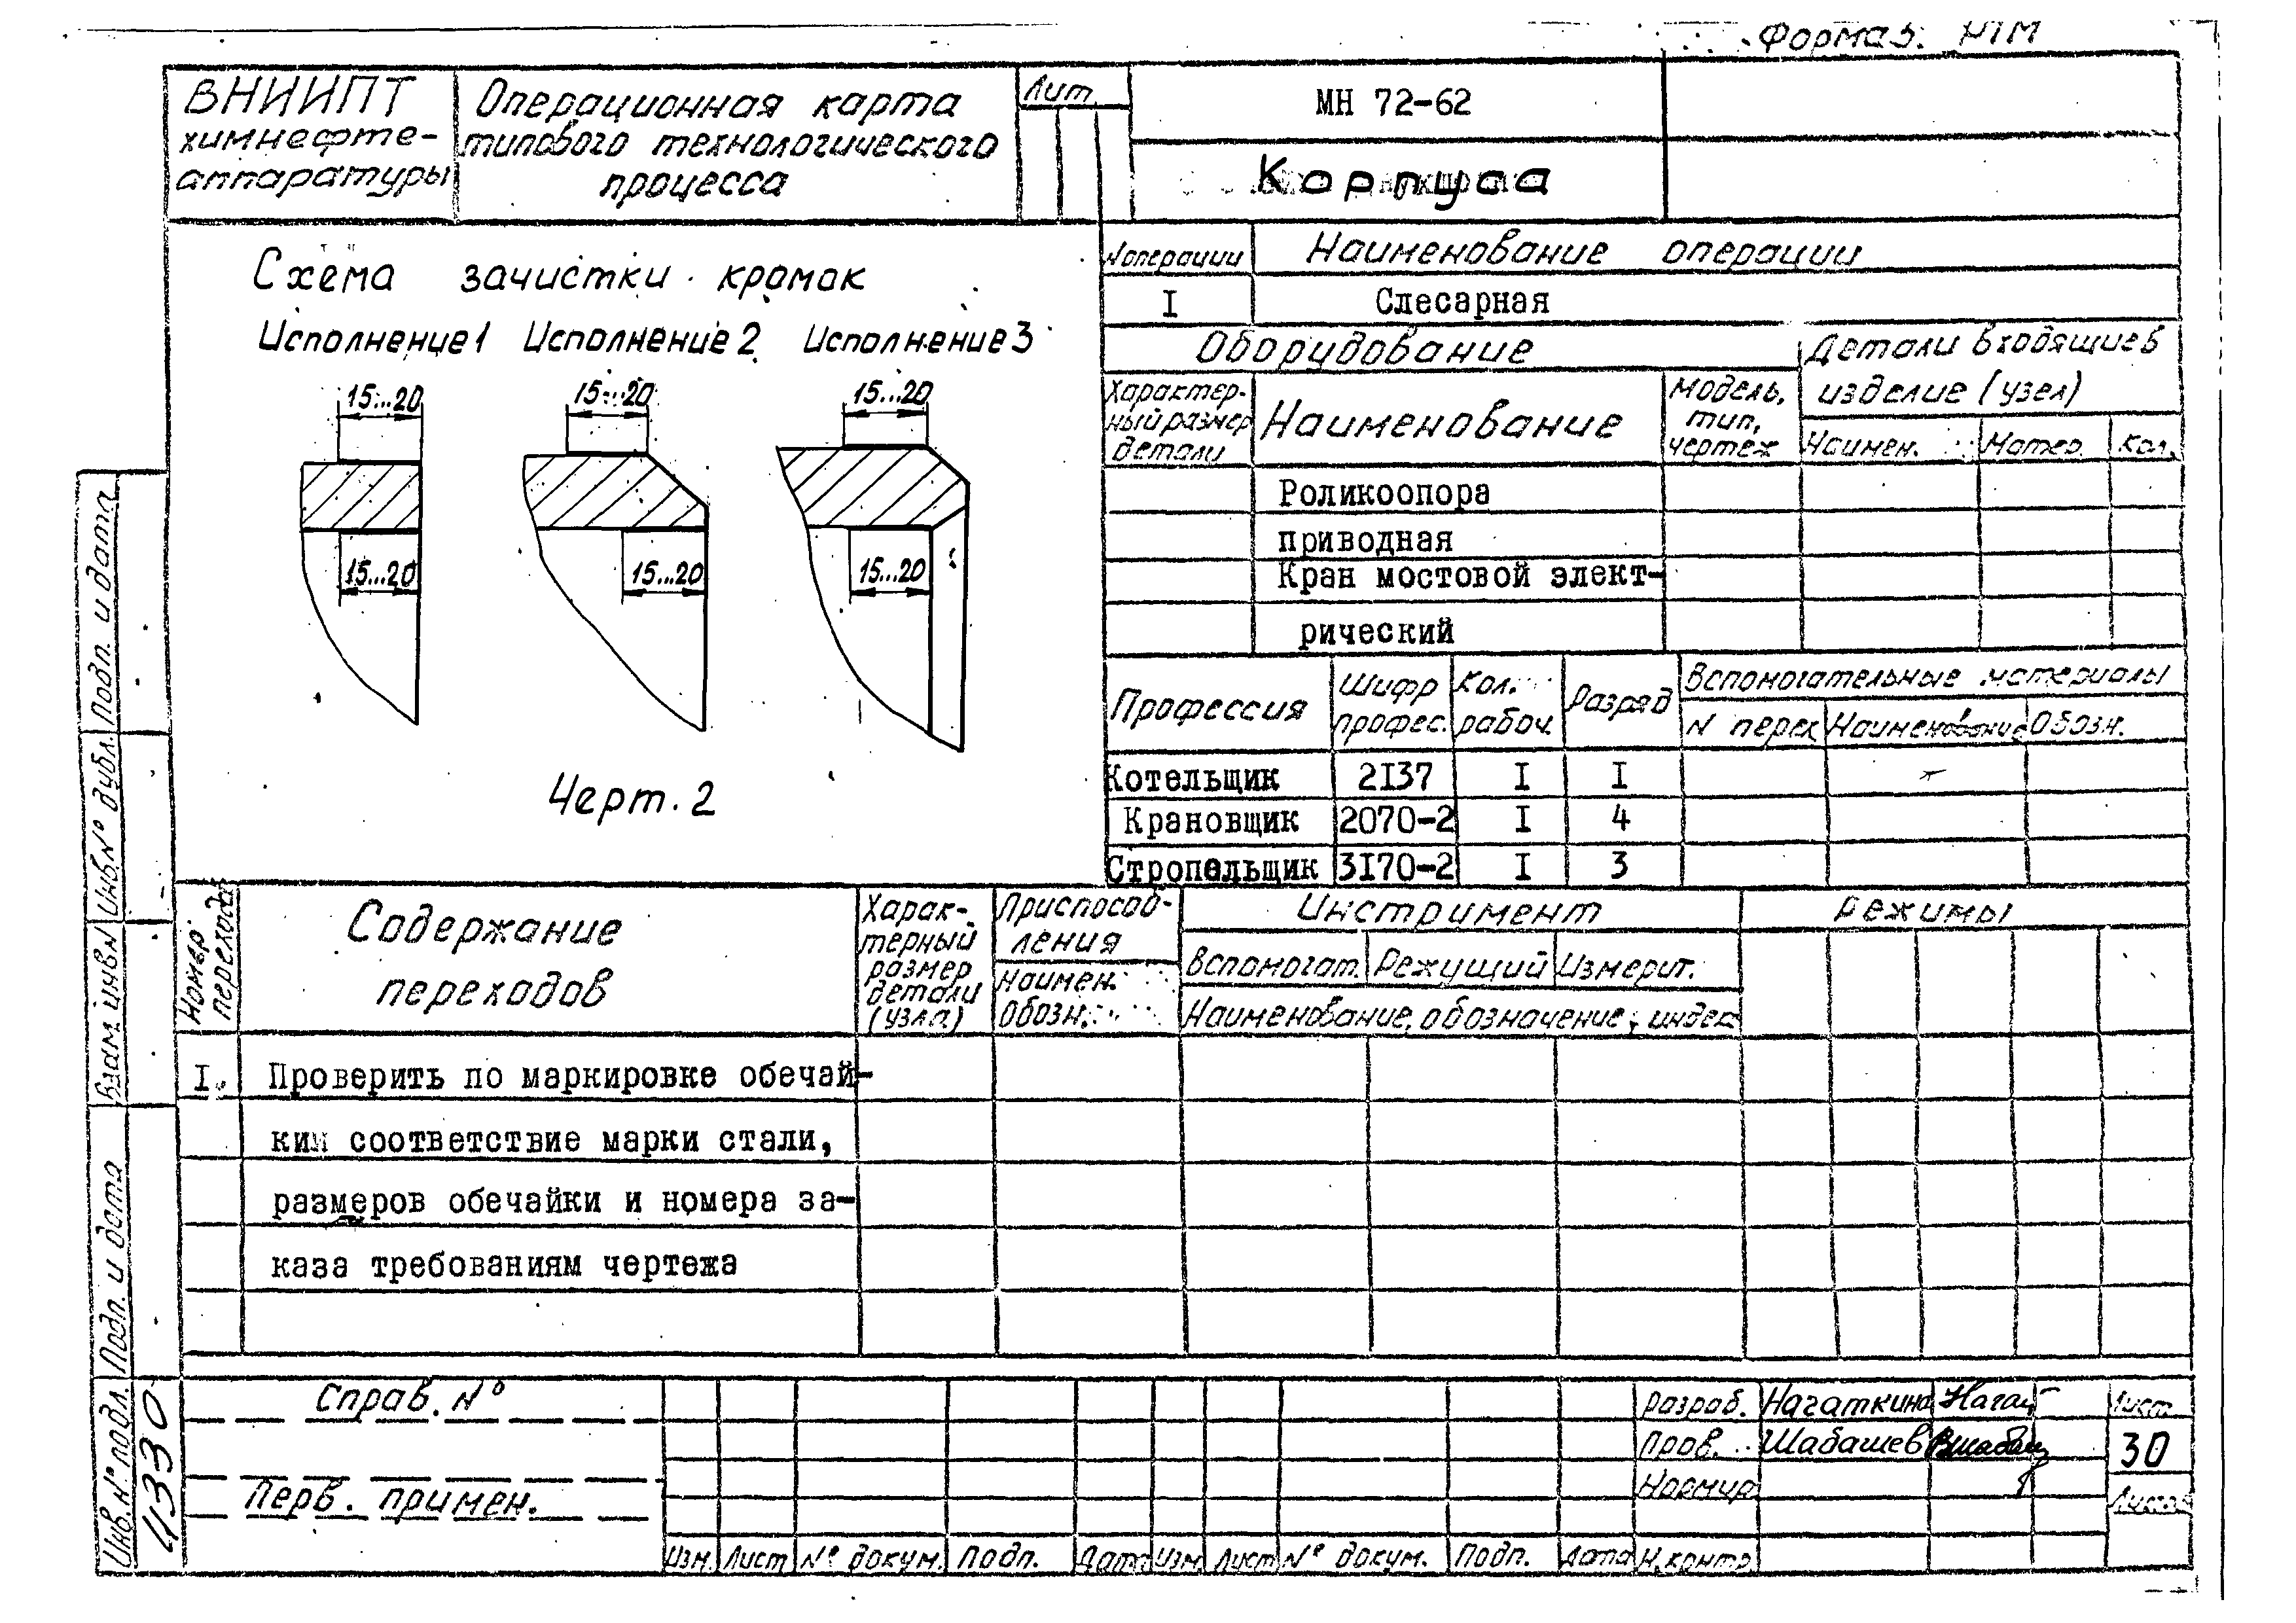 Форма 3. РТМ
ВНИИПТ
химнефте-
аппаратуры
Операционная карта
типового технологического
процесса
Лит.
МН 72-62
Корпуса
Схема зачистки кромок
Исполнение 1 Исполнение 2 Исполнение 3
15...20 15...20 15...20
15...20 15...20 15...20
Черт. 2
N операции Наименование операции
I Слесарная
Оборудование
Детали входящие в
изделие (узел)
Характер-
ный размер
детали
Наименование
Модель,
тип,
чертеж
Наимен. Матер. Кол.
Роликоопора
приводная
Кран мостовой элект-
рический
Профессия
Шифр
профес.
Кол.
рабоч.
Разряд
Вспомогательные материалы
N перех Наименование Обозн.
Котельщик 2I37 I I
Крановщик 2070-2 I 4
Стропальщик 3I70-2 I 3
Номер
перехода
Содержание
переходов
Харак-
терный
размер
детали
(узла)
Приспособ-
ления
Наимен.
Обозн.
Инструмент
Вспомогат. Режущий Измерит.
Наименование, обозначение, индек
Режимы
I. Проверить по маркировке обечай-
ки соответствие марки стали,
размеров обечайки и номера за-
каза требованиям чертежа
Справ. №
Перв. примен.
Изм. Лист № докум. Подп. Дата Изм. Лист № докум. Подп. Дата
Разраб. Нагаткина
Пров. Шабашев
Нормир.
Н.контр.
Лист
30
Листов
Подп. и дата
Инв. № дубл.
Взам. инв. N
Подп. и дата
Инв. № подл.
4330